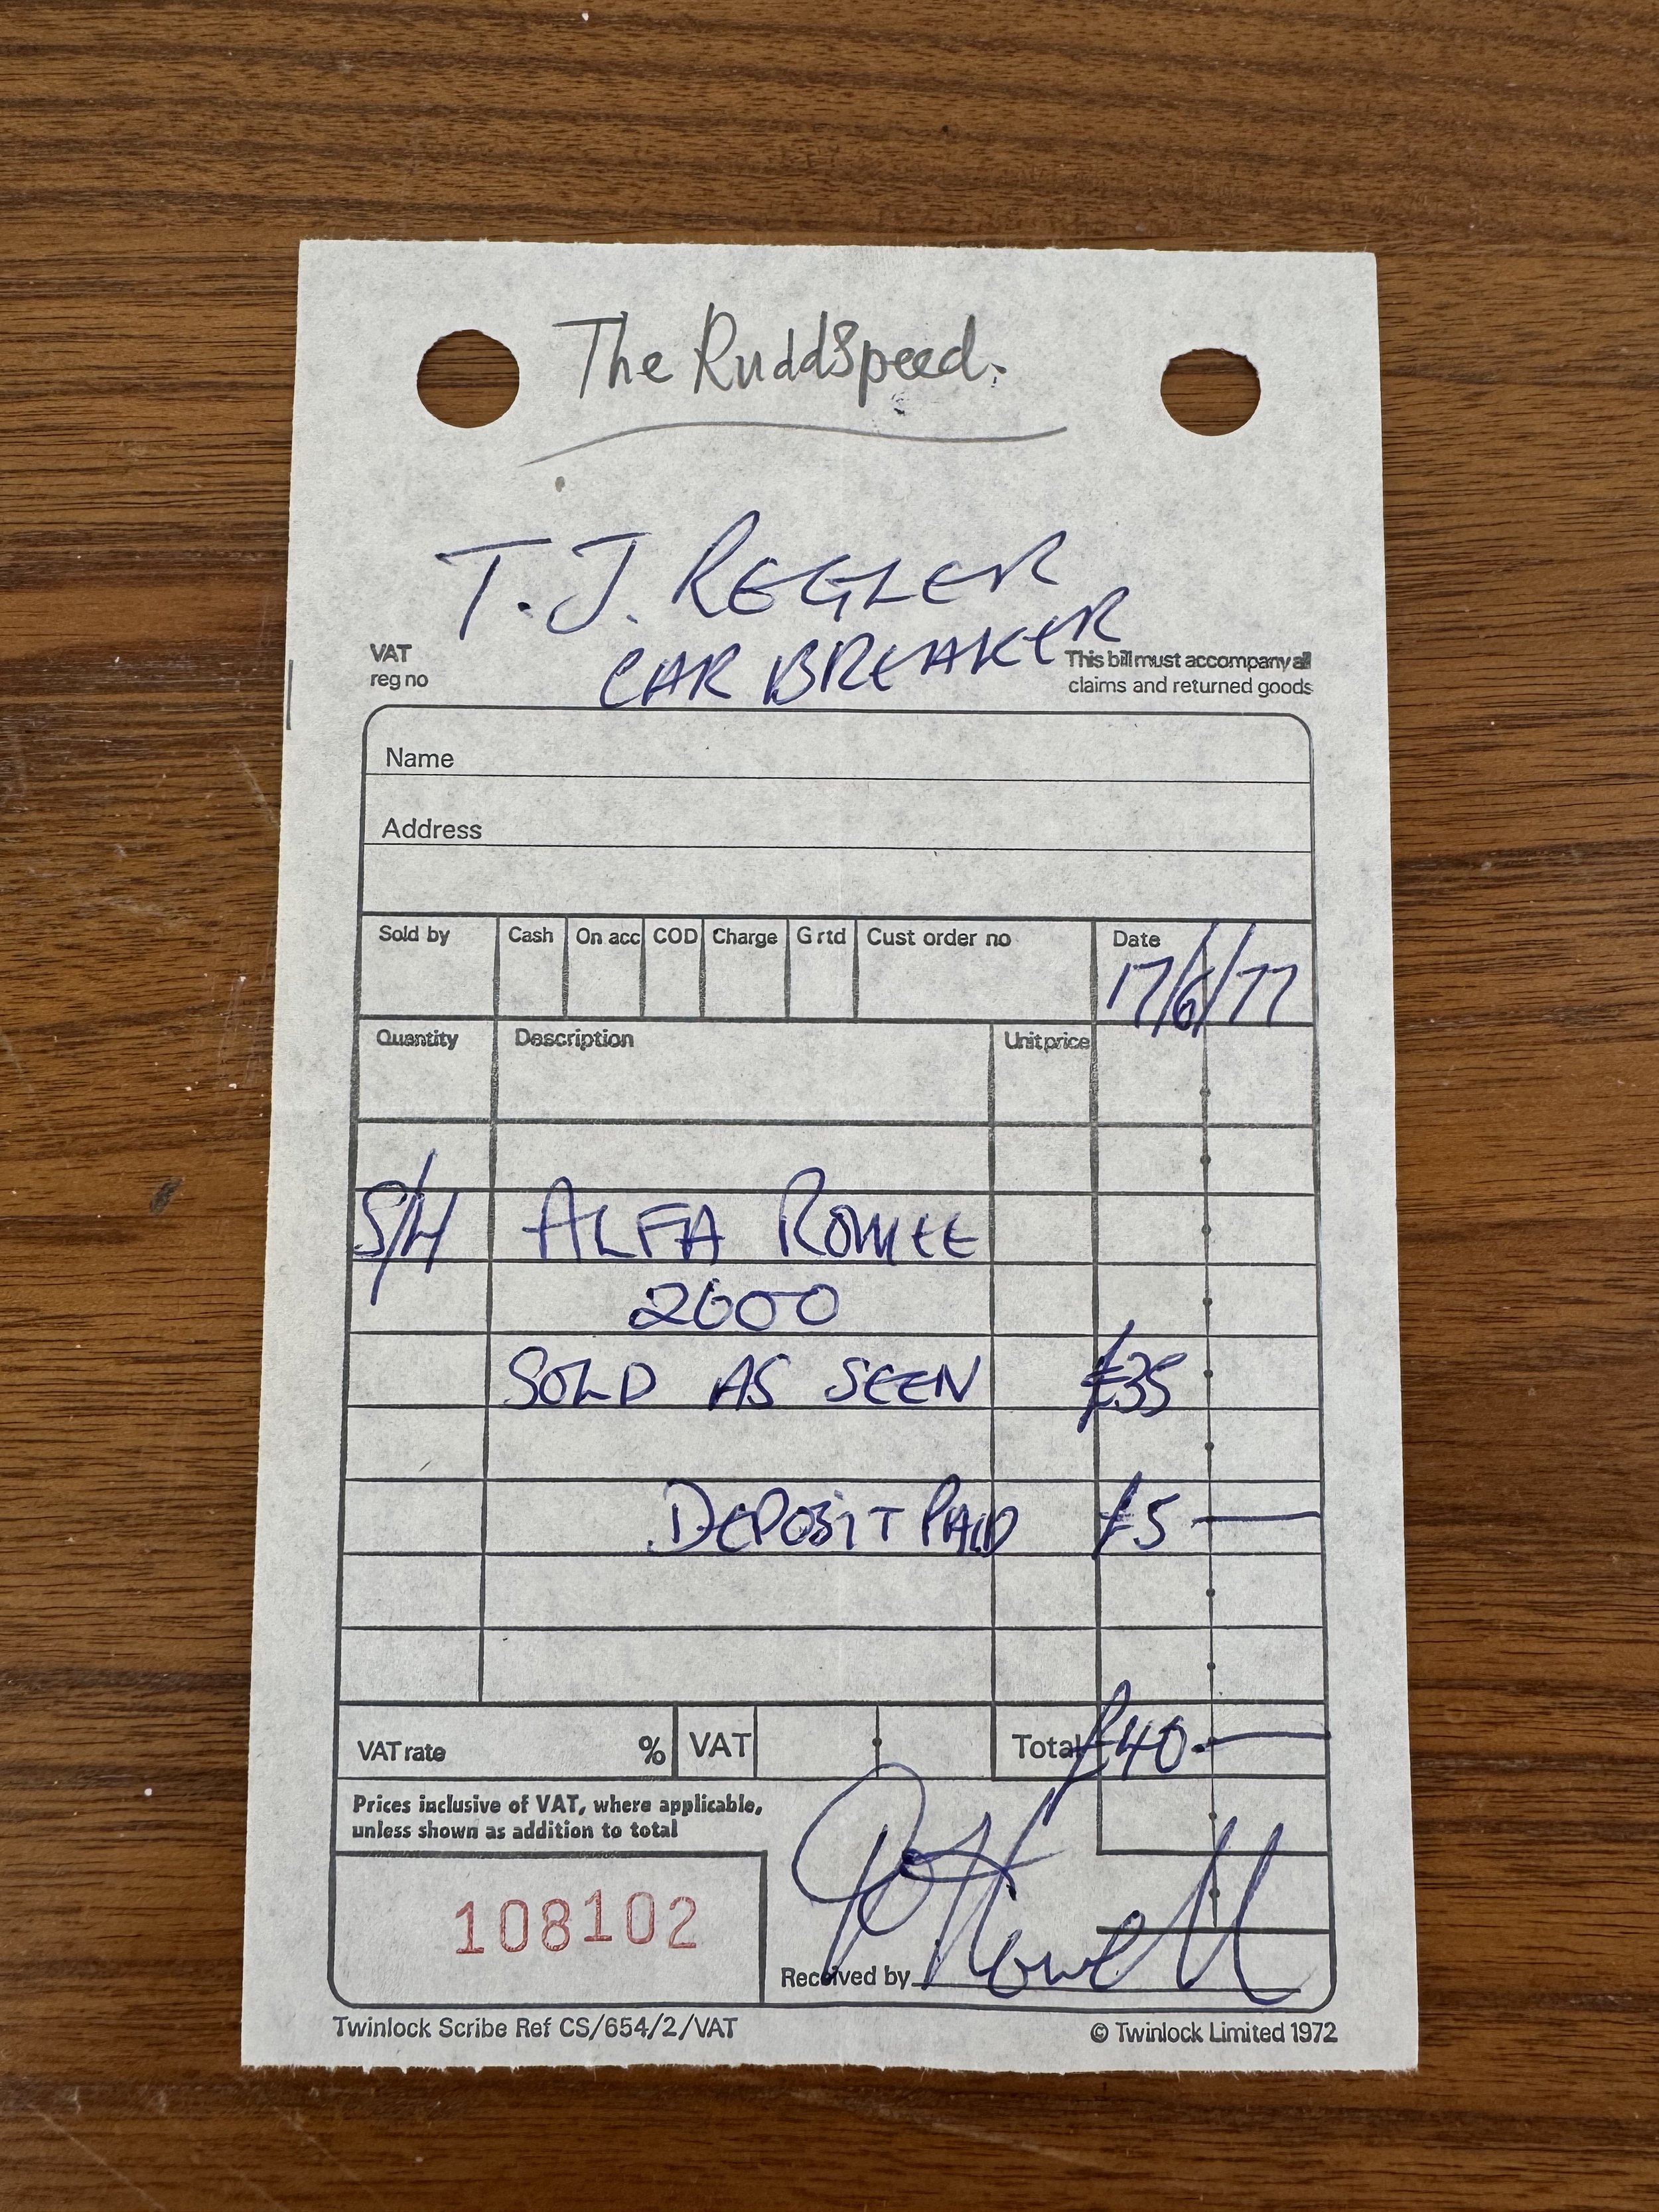 The RuddSpeed.
T. J. REGLER
CAR BREAKER
VAT
reg no
This bill must accompany all
claims and returned goods
Name
Address
Sold by Cash On acc COD Charge G rtd Cust order no Date
17/6/77
Quantity Description Unit price
S/H ALFA ROMEE
2600
SOLD AS SEEN £35
DEPOSIT PAID £5 —
VAT rate % VAT Total £40. —
Prices inclusive of VAT, where applicable,
unless shown as addition to total
108102
Received by
Twinlock Scribe Ref CS/654/2/VAT © Twinlock Limited 1972